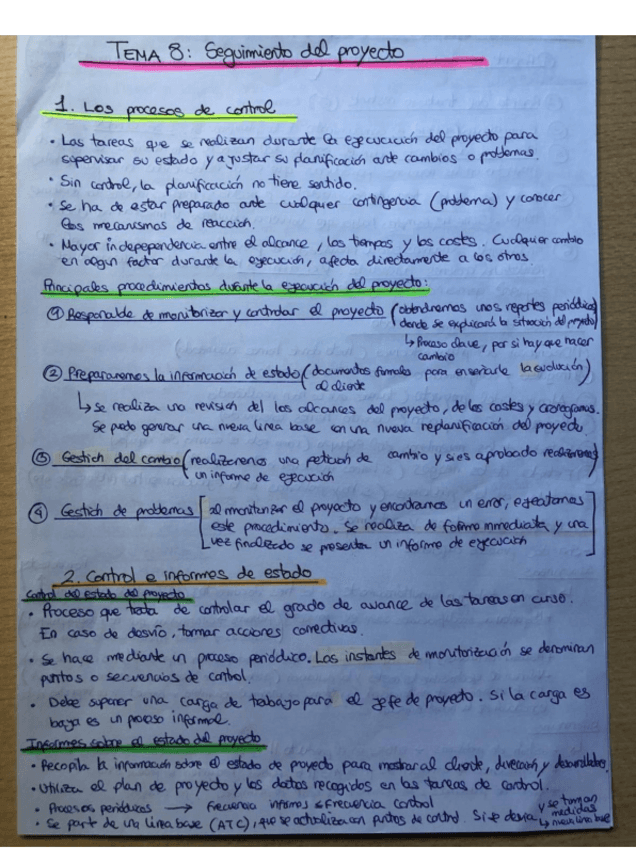 TEMA 8: Seguimiento del proyecto
1. Los procesos de control
• Las tareas que se realizan durante la ejecución del proyecto para
supervisar su estado y ajustar su planificación ante cambios o problemas.
• Sin control, la planificación no tiene sentido.
• Se ha de estar preparado ante cualquier contingencia (problema) y conocer
los mecanismos de reacción.
• Mayor independencia entre el alcance, los tiempos y los costes. Cualquier cambio
en algún factor durante la ejecución, afecta directamente a los otros.
Principales procedimientos durante la ejecución del proyecto:
① Responsable de monitorizar y controlar el proyecto (obtendremos unos reportes periódicos
donde se explicará la situación del proyecto)
↳ Proceso clave, por si hay que hacer
cambio
② Prepararemos la información de estado (documentos formales para enseñarle la evolución)
al cliente
↳ Se realiza una revisión del los alcances del proyecto, de los costes y cronogramas.
Se puede generar una nueva línea base con una nueva replanificación del proyecto.
③ Gestión del cambio (realizaremos una petición de cambio y si es aprobado realizaremos)
un informe de ejecución
④ Gestión de problemas [al monitorizar el proyecto y encontramos un error, ejecutamos
este procedimiento. Se realiza de forma inmediata y una
vez finalizado se presenta un informe de ejecución]
2. Control e informes de estado
Control del estado del proyecto
• Proceso que trata de controlar el grado de avance de las tareas en curso.
En caso de desvío, tomar acciones correctivas.
• Se hace mediante un proceso periódico. Los instantes de monitorización se denominan
puntos o secuencias de control.
• Debe suponer una carga de trabajo para el jefe de proyecto. Si la carga es
baja es un proceso informal.
Informes sobre el estado del proyecto
• Recopila la información sobre el estado de proyecto para mostrar al cliente, dirección y desarrolladores.
• Utiliza el plan de proyecto y los datos recogidos en las tareas de control.
• Procesos periódicos → frecuencia informes ≤ frecuencia control
• Se parte de una línea base (ATC), que se actualiza con puntos de control. Si se desvía
y se toman
medidas
↳ nueva línea base